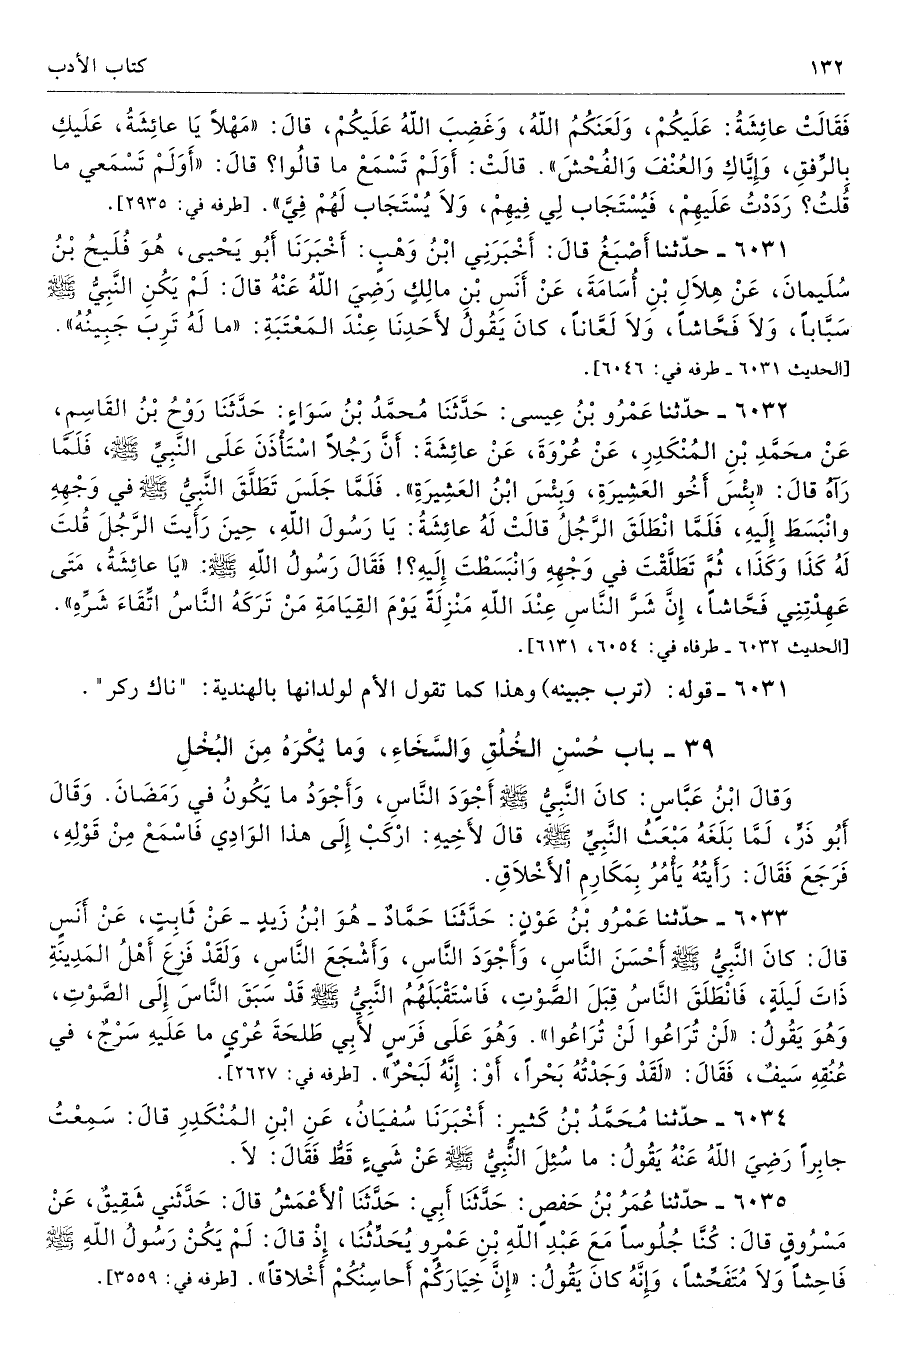 ١٣٢ كتاب الأدب
فَقَالَتْ عائِشَةُ: عَلَيكُمْ، وَلَعَنَكُمُ اللّهُ، وَغَضِبَ اللّهُ عَلَيكُمْ، قالَ: «مَهْلاً يَا عائِشَةُ، عَلَيكِ
بِالرِّفقِ، وَإِيَّاكِ وَالعُنْفَ وَالفُحْشَ». قالَتْ: أَوَلَمْ تَسْمَعْ ما قالُوا؟ قالَ: «أَوَلَمْ تَسْمَعي ما
قُلتُ؟ رَدَدْتُ عَلَيهِمْ، فَيُسْتَجَاب لِي فِيهِمْ، وَلاَ يُسْتَجَاب لَهُمْ فِيَّ». [طرفه في: ٢٩٣٥].
٦٠٣١ ـ حدّثنا أَصْبَغُ قالَ: أَخْبَرَنِي ابْنُ وَهْبٍ: أَخْبَرَنَا أَبُو يَحْيى، هُوَ فُلَيحُ بْنُ
سُلَيمانَ، عَنْ هِلاَلِ بْنِ أُسَامَةَ، عَنْ أَنَسِ بْنِ مالِكٍ رَضِيَ اللّهُ عَنْهُ قالَ: لَمْ يَكُنِ النَّبِيُّ ﷺ
سَبَّاباً، وَلاَ فَحَّاشاً، وَلاَ لَعَّاناً، كانَ يَقُولُ لأَحَدِنَا عِنْدَ المَعْتَبَةِ: «ما لَهُ تَرِبَ جَبِينُهُ».
[الحديث ٦٠٣١ ـ طرفه في: ٦٠٤٦].
٦٠٣٢ ـ حدّثنا عَمْرُو بْنُ عِيسى: حَدَّثَنَا مُحمَّدُ بْنُ سَوَاءٍ: حَدَّثَنَا رَوْحُ بْنُ القَاسِمِ،
عَنْ محَمَّدِ بْنِ المُنْكَدِرِ، عَنْ عُرْوَةَ، عَنْ عائِشَةَ: أَنَّ رَجُلاً اسْتَأْذَنَ عَلَى النَّبِيِّ ﷺ، فَلَمَّا
رَآهُ قالَ: «بِئْسَ أَخُو العَشِيرَةِ، وَبِئْسَ ابْنُ العَشِيرَةِ». فَلَمَّا جَلَسَ تَطَلَّقَ النَّبِيُّ ﷺ في وَجْهِهِ
وانْبَسَطَ إِلَيهِ، فَلَمَّا انْطَلَقَ الرَّجُلُ قالَتْ لَهُ عائِشَةُ: يَا رَسُولَ اللّهِ، حِينَ رَأَيتَ الرَّجُلَ قُلتَ
لَهُ كَذَا وَكَذَا، ثُمَّ تَطَلَّقْتَ في وَجْهِهِ وَانْبَسَطْتَ إِلَيهِ؟! فَقَالَ رَسُولُ اللّهِ ﷺ: «يَا عائِشَةُ، مَتَى
عَهِدْتِنِي فَحَّاشاً، إِنَّ شَرَّ النَّاسِ عِنْدَ اللّهِ مَنْزِلَةً يَوْمَ القِيَامَةِ مَنْ تَرَكَهُ النَّاسُ اتِّقَاءَ شَرِّهِ».
[الحديث ٦٠٣٢ ـ طرفاه في: ٦٠٥٤، ٦١٣١].
٦٠٣١ ـ قوله: (ترب جبينه) وهذا كما تقول الأم لولدانها بالهندية: "ناك ركر".
٣٩ ـ باب حُسْنِ الخُلُقِ وَالسَّخَاءِ، وَما يُكْرَهُ مِنَ البُخْلِ
وَقالَ ابْنُ عَبَّاسٍ: كانَ النَّبِيُّ ﷺ أَجْوَدَ النَّاسِ، وَأَجْوَدُ ما يَكُونُ في رَمَضَانَ. وَقَالَ
أَبُو ذَرٍّ، لَمَّا بَلَغَهُ مَبْعَثُ النَّبِيِّ ﷺ، قالَ لأَخِيهِ: ارْكَبْ إِلَى هذا الوَادِي فَاسْمَعْ مِنْ قَوْلِهِ،
فَرَجَعَ فَقَالَ: رَأَيتُهُ يَأْمُرُ بِمَكارِمِ الأَخْلاَقِ.
٦٠٣٣ ـ حدّثنا عَمْرُو بْنُ عَوْنٍ: حَدَّثَنَا حَمَّادٌ ـ هُوَ ابْنُ زَيدٍ ـ عَنْ ثَابِتٍ، عَنْ أَنَسٍ
قالَ: كانَ النَّبِيُّ ﷺ أَحْسَنَ النَّاسِ، وَأَجْوَدَ النَّاسِ، وَأَشْجَعَ النَّاسِ، وَلَقَدْ فَزِعَ أَهْلُ المَدِينَةِ
ذَاتَ لَيلَةٍ، فَانْطَلَقَ النَّاسُ قِبَلَ الصَّوْتِ، فَاسْتَقْبَلَهُمُ النَّبِيُّ ﷺ قَدْ سَبَقَ النَّاسَ إِلَى الصَّوْتِ،
وَهُوَ يَقُولُ: «لَنْ تُرَاعُوا لَنْ تُرَاعُوا». وَهُوَ عَلَى فَرَسٍ لأَبِي طَلحَةَ عُرْيٍ ما عَلَيهِ سَرْجٌ، في
عُنُقِهِ سَيفٌ، فَقَالَ: «لَقَدْ وَجَدْتُهُ بَحْراً، أَوْ: إِنَّهُ لَبَحْرٌ». [طرفه في: ٢٦٢٧].
٦٠٣٤ ـ حدّثنا مُحَمَّدُ بْنُ كَثيرٍ: أَخْبَرَنَا سُفيَانُ، عَنِ ابْنِ المُنْكَدِرِ قالَ: سَمِعْتُ
جابِراً رَضِيَ اللّهُ عَنْهُ يَقُولُ: ما سُئِلَ النَّبِيُّ ﷺ عَنْ شَيءٍ قَطُّ فَقَالَ: لاَ.
٦٠٣٥ ـ حدّثنا عُمَرُ بْنُ حَفصٍ: حَدَّثَنَا أَبِي: حَدَّثَنَا الأَعْمَشُ قالَ: حَدَّثَني شَقِيقٌ، عَنْ
مَسْرُوقٍ قالَ: كُنَّا جُلُوساً مَعَ عَبْدِ اللّهِ بْنِ عَمْرٍو يُحَدِّثُنَا، إِذْ قالَ: لَمْ يَكُنْ رَسُولُ اللّهِ ﷺ
فَاحِشاً وَلاَ مُتَفَحِّشاً، وَإِنَّهُ كانَ يَقُولُ: «إِنَّ خِيَارَكُمْ أَحاسِنُكُمْ أَخْلاقاً». [طرفه في: ٣٥٥٩].